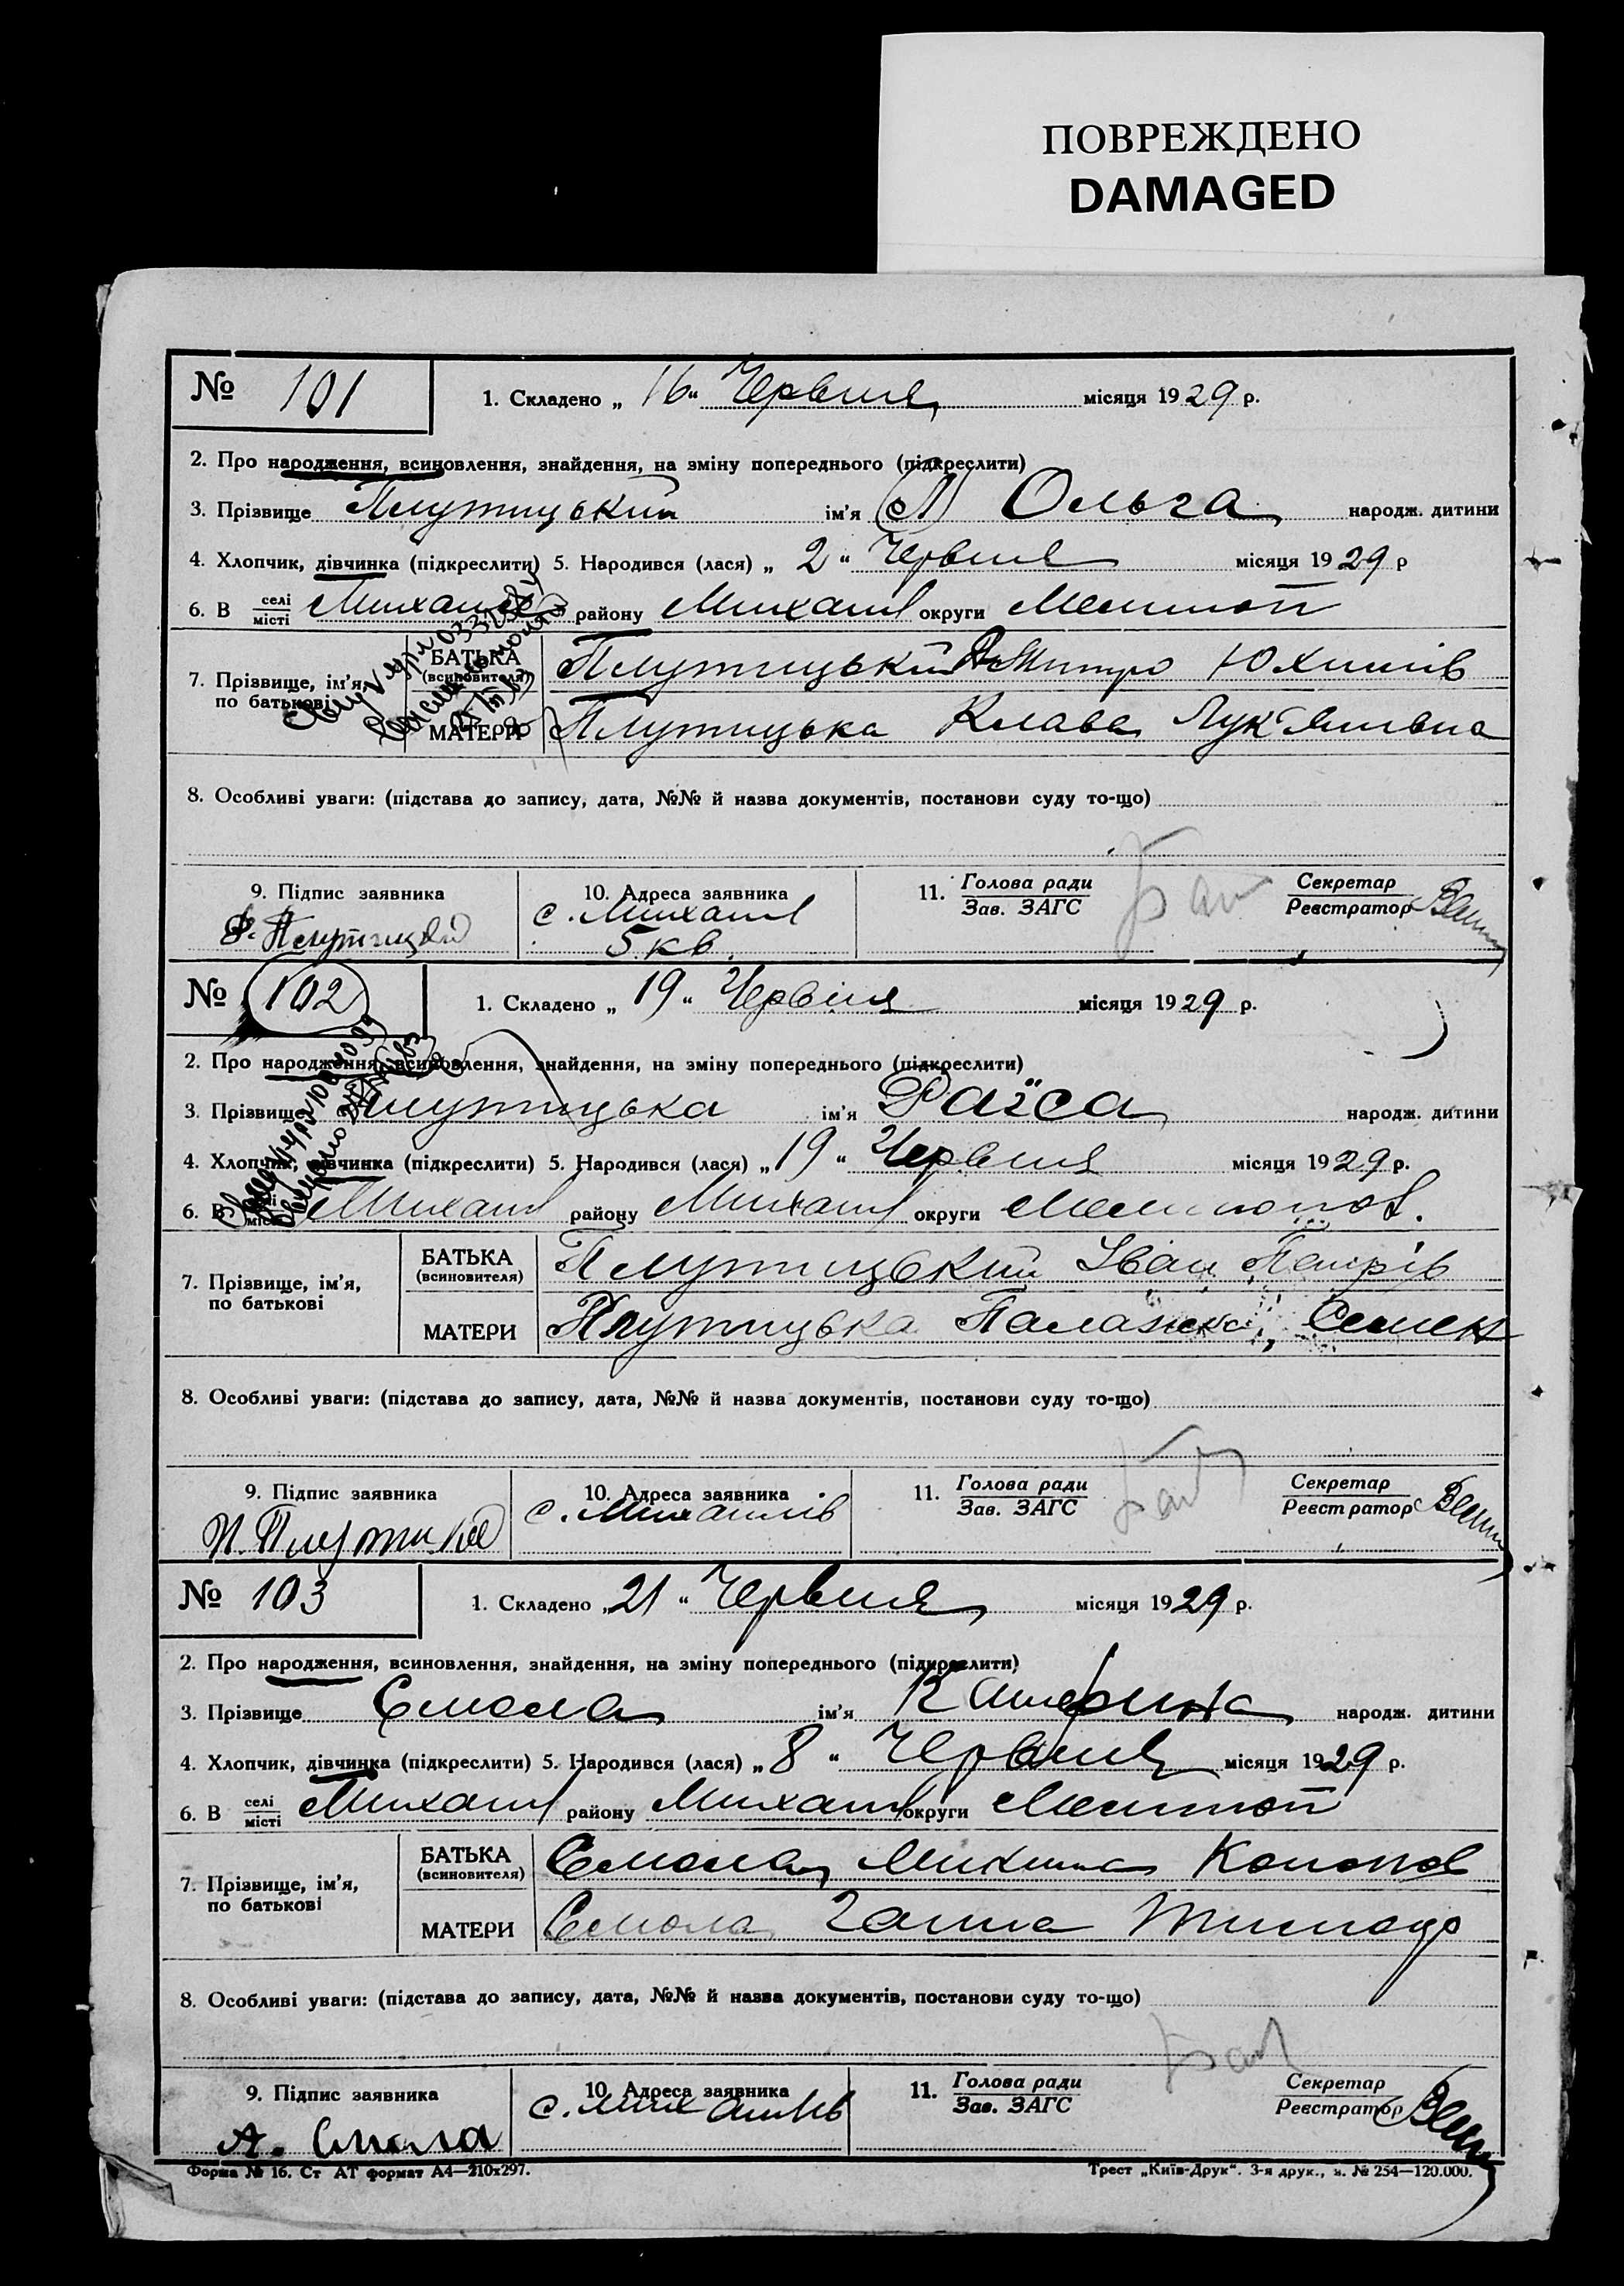 ПОВРЕЖДЕНО
DAMAGED
№ 101 1. Складено „ 16 “ Червня місяця 1929 р.
2. Про народження, всиновлення, знайдення, на зміну попереднього (підкреслити)
3. Прізвище Плутицький ім’я Ольга народж. дитини
4. Хлопчик, дівчинка (підкреслити) 5. Народився (лася) „ 2 “ Червня місяця 1929 р
6. В селі місті Михайлів району Михайлів округи Мелитоп
7. Прізвище, ім’я, по батькові
БАТЬКА (всиновителя) Плутицький Дмитро Юхимів
МАТЕРИ Плутицька Клава Лук'янівна
8. Особливі уваги: (підстава до запису, дата, №№ й назва документів, постанови суду то-що)
9. Підпис заявника 10. Адреса заявника 11. Голова ради Зав. ЗАГС Секретар Реєстратор
с. Михайл
5 кв.
№ 102 1. Складено „ 19 “ Червіня місяця 1929 р.
2. Про народження, всиновлення, знайдення, на зміну попереднього (підкреслити)
3. Прізвище Плутицька ім’я Раїса народж. дитини
4. Хлопчик, дівчинка (підкреслити) 5. Народився (лася) „ 19 “ Червня місяця 1929 р.
6. В селі місті Михайл району Михайл округи Мелитопол.
7. Прізвище, ім’я, по батькові
БАТЬКА (всиновителя) Плутицький Іван Петрів
МАТЕРИ Плутицька Палажка Семен
8. Особливі уваги: (підстава до запису, дата, №№ й назва документів, постанови суду то-що)
9. Підпис заявника 10. Адреса заявника 11. Голова ради Зав. ЗАГС Секретар Реєстратор
с. Михайлів
№ 103 1. Складено „ 21 “ Червня місяця 1929 р.
2. Про народження, всиновлення, знайдення, на зміну попереднього (підкреслити)
3. Прізвище Смола ім’я Катерина народж. дитини
4. Хлопчик, дівчинка (підкреслити) 5. Народився (лася) „ 8 “ Червня місяця 1929 р.
6. В селі місті Михайл району Михайл округи Мелитоп
7. Прізвище, ім’я, по батькові
БАТЬКА (всиновителя) Смола Микита Конон
МАТЕРИ Смола Ганна Тимоф
8. Особливі уваги: (підстава до запису, дата, №№ й назва документів, постанови суду то-що)
9. Підпис заявника 10. Адреса заявника 11. Голова ради Зав. ЗАГС Секретар Реєстратор
А. Смола с. Михайлів
Форма № 16. Ст АТ формат А4—210х297. Трест „Київ-Друк“. 3-я друк., з. № 254—120.000.